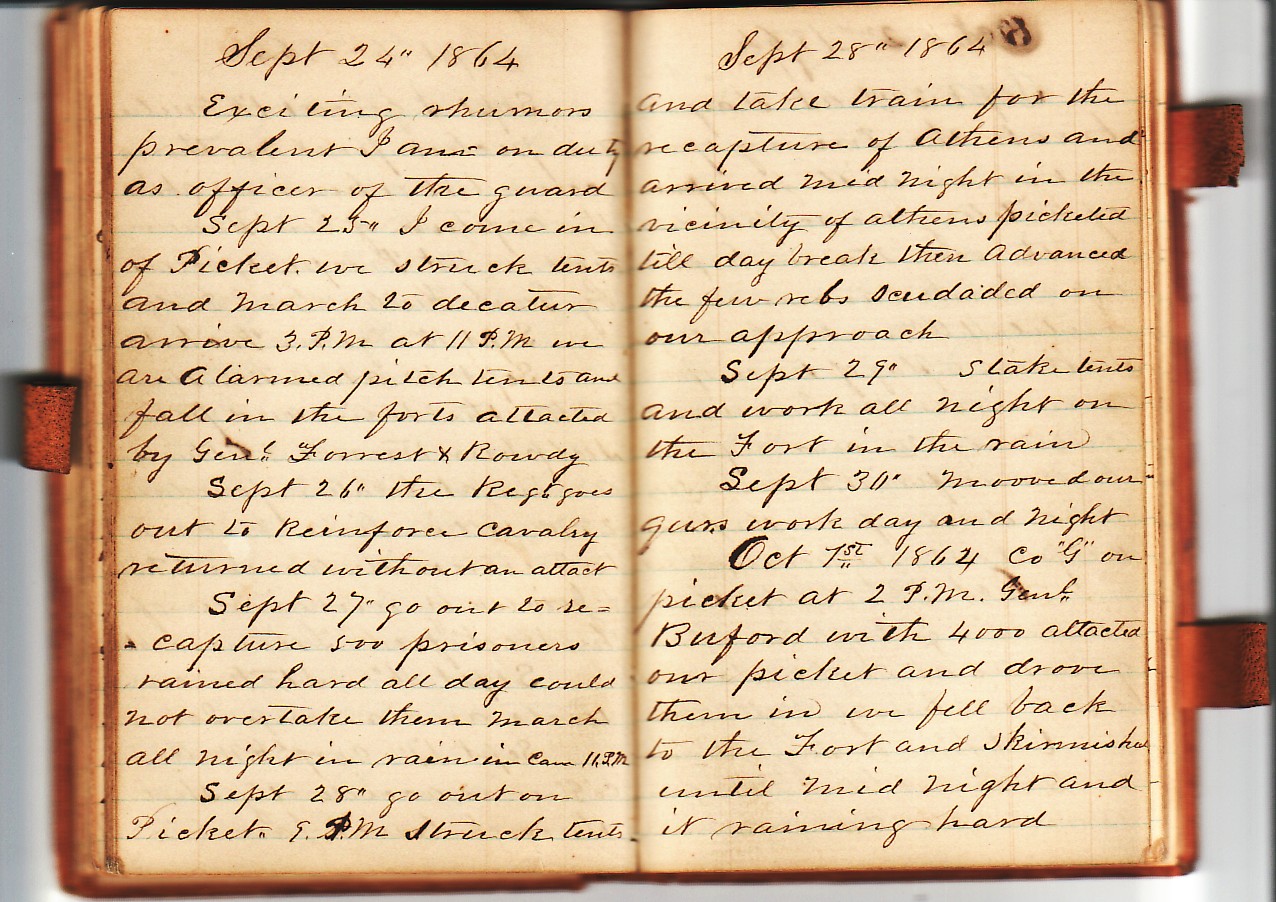 Sept 24" 1864
Exciting rhumors
prevalent I am on duty
as officer of the guard
Sept 25" I come in
of Picket. we struck tents
and March to decatur
arrive 3. P.M at 11 P.M we
are Alarmed pitch tents and
fall in the forts attacted
by Genl. Forrest & Rowdy
Sept 26" the Regt goes
out to Reinforce Cavalry
returned without an attact
Sept 27" go out to re=
capture 500 prisoners
rained hard all day could
not overtake them March
all night in rain in Cam 11,P.M
Sept 28" go out on
Picket. 9. P.M struck tents
Sept 28" 1864
and take train for the
recapture of Athens and
arrived Mid Night in the
vicinity of athens picketed
till day break then Advanced
the few rebs scudaded on
our approach
Sept 29" Stake tents
and work all Night on
the Fort in the rain
Sept 30" Mooved our
guns work day and Night
Oct 1st 1864 Co "G" on
picket at 2 P.M. Genl.
Buford with 4000 attacted
our picket and drove
them in we fell back
to the Fort and Skirmished
until Mid Night and
it raining hard